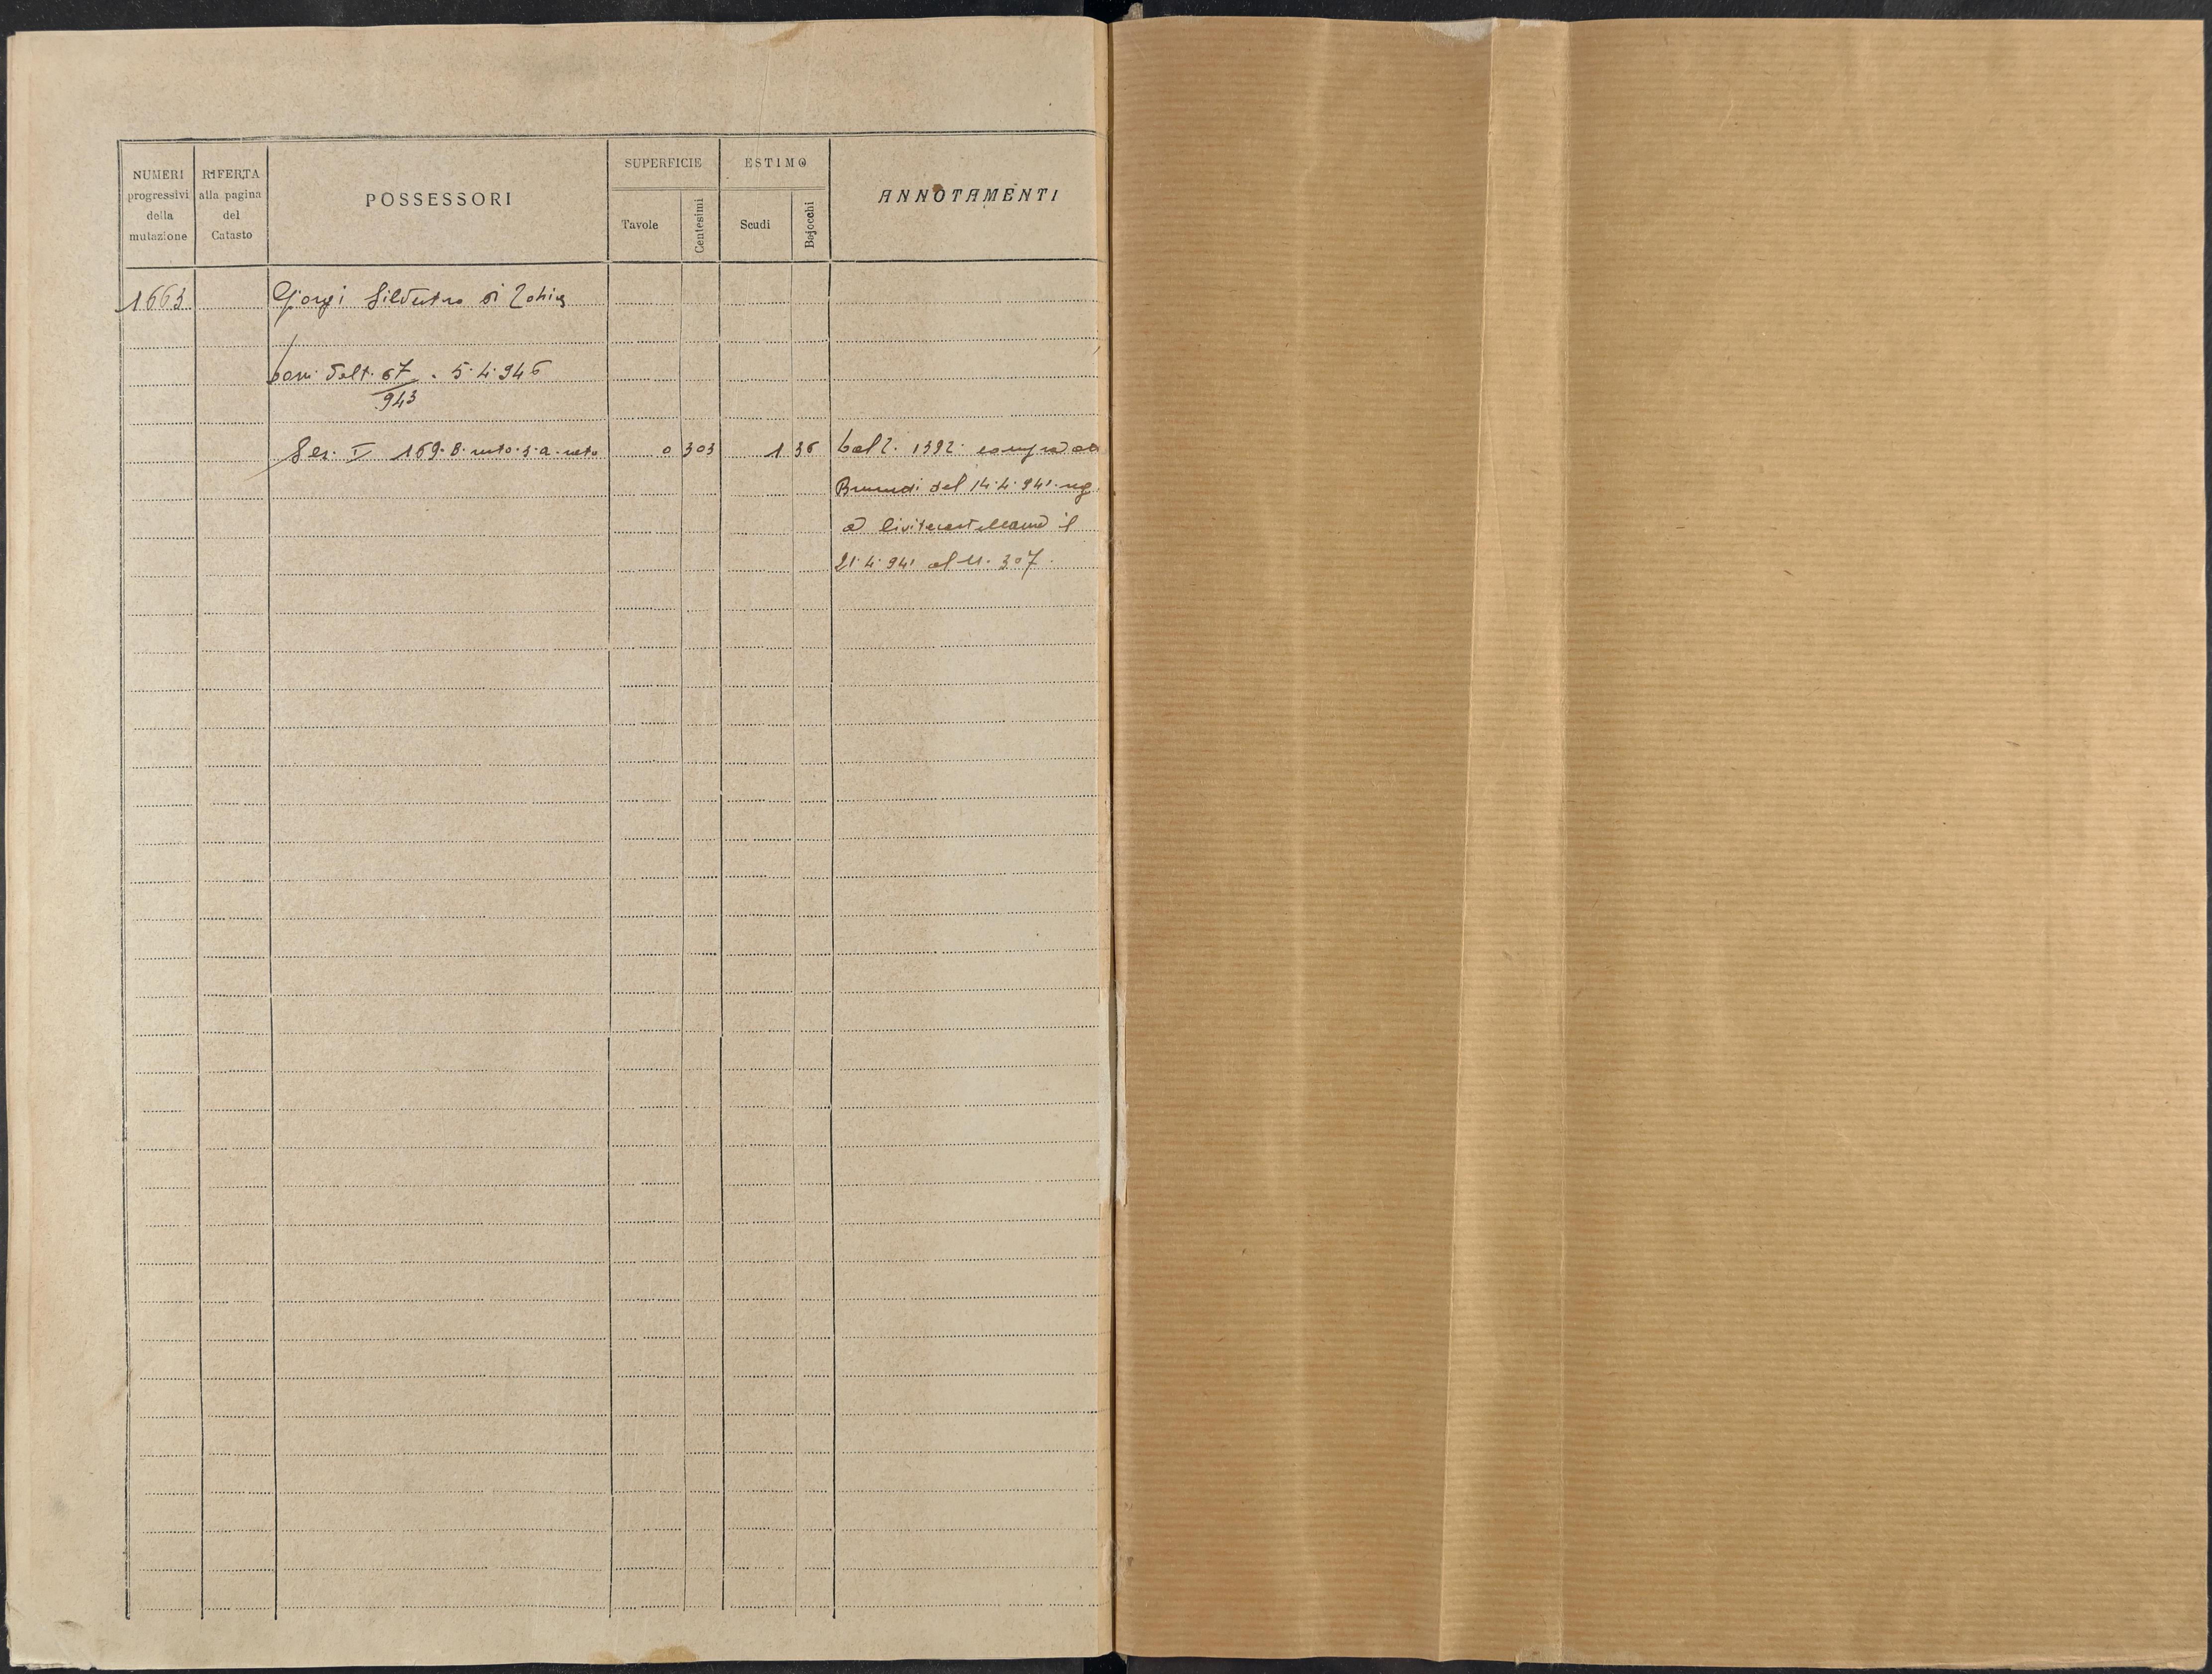 NUMERI progressivi della mutazione
RIFERTA alla pagina del Catasto
POSSESSORI
SUPERFICIE
Tavole
Centesimi
ESTIMO
Scudi
Bajocchi
ANNOTAMENTI
1663 Giorgi Silvestro di
67 . 5.4.946
943
Sez. I 169.B. 0 303 1 36 1392
del 14.4.941. reg.
a Civitacastellana il
21.4.941 al N. 307.